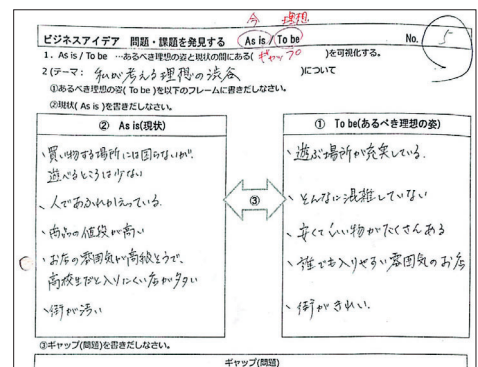 今 理想
ビジネスアイデア 問題・課題を発見する As is / To be No. 5
1．As is / To be …あるべき理想の姿と現状の間にある( ギャップ )を可視化する。
2 (テーマ： 私が考える理想の渋谷 )について
①あるべき理想の姿( To be )を以下のフレームに書きだしなさい。
②現状( As is )を書きだしなさい。
② As is(現状)
、買い物する場所には困らないが、
遊べるところは少ない
、人であふれかえっている。
、商品の値段が高い
、お店の雰囲気が高級そうで、
高校生だと入りにくい店が多い
、街が汚い
③
① To be(あるべき理想の姿)
、遊ぶ場所が充実している。
、そんなに混雑していない
、安くていい物がたくさんある
、誰でも入りやすい雰囲気のお店
、街がきれい.
③ギャップ(問題)を書きだしなさい。
ギャップ(問題)